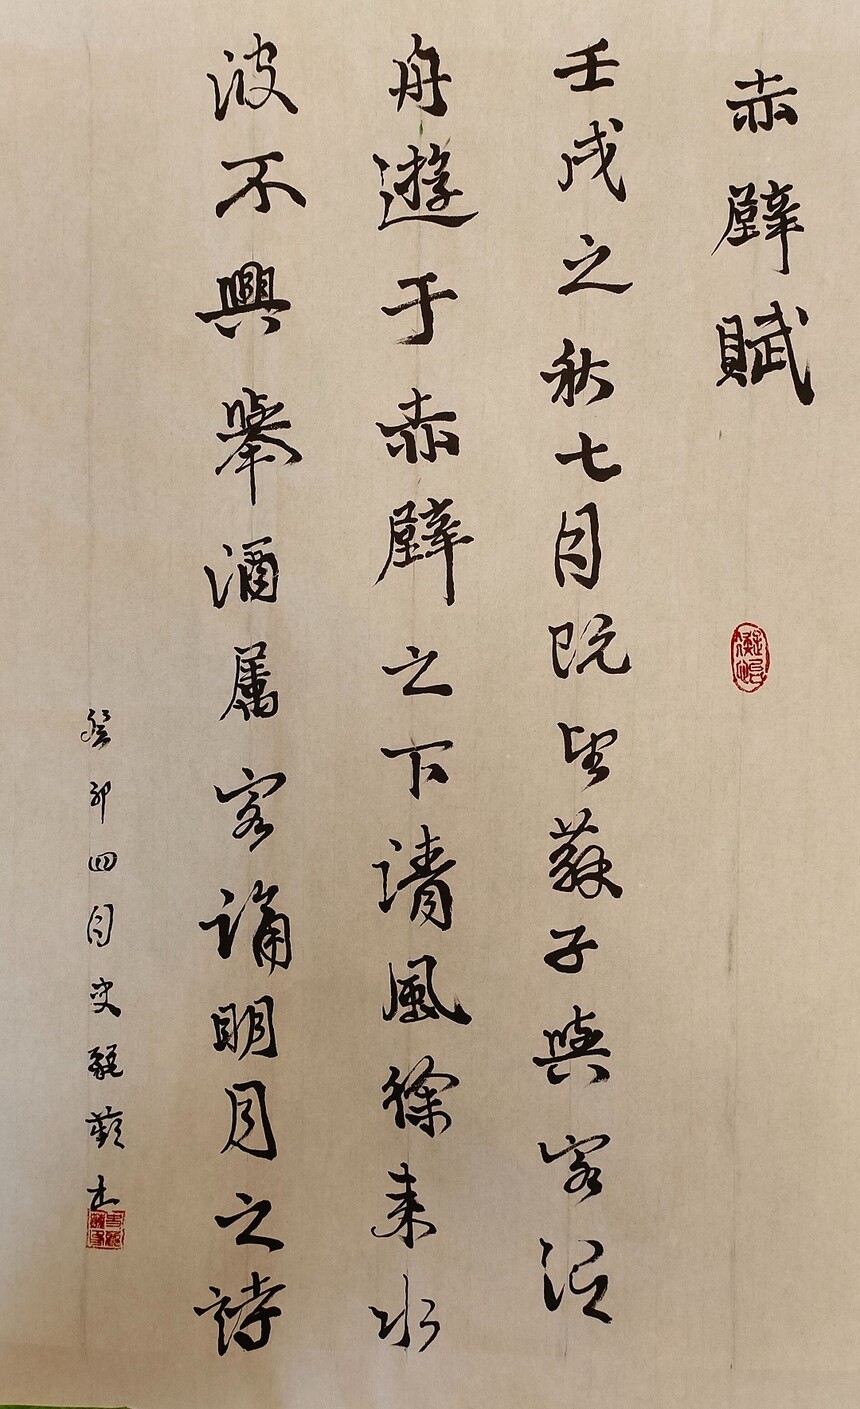 赤壁賦
壬戌之秋七月既望蘇子與客泛
舟遊于赤壁之下清風徐来水
波不興舉酒屬客誦明月之詩
癸卯四月史